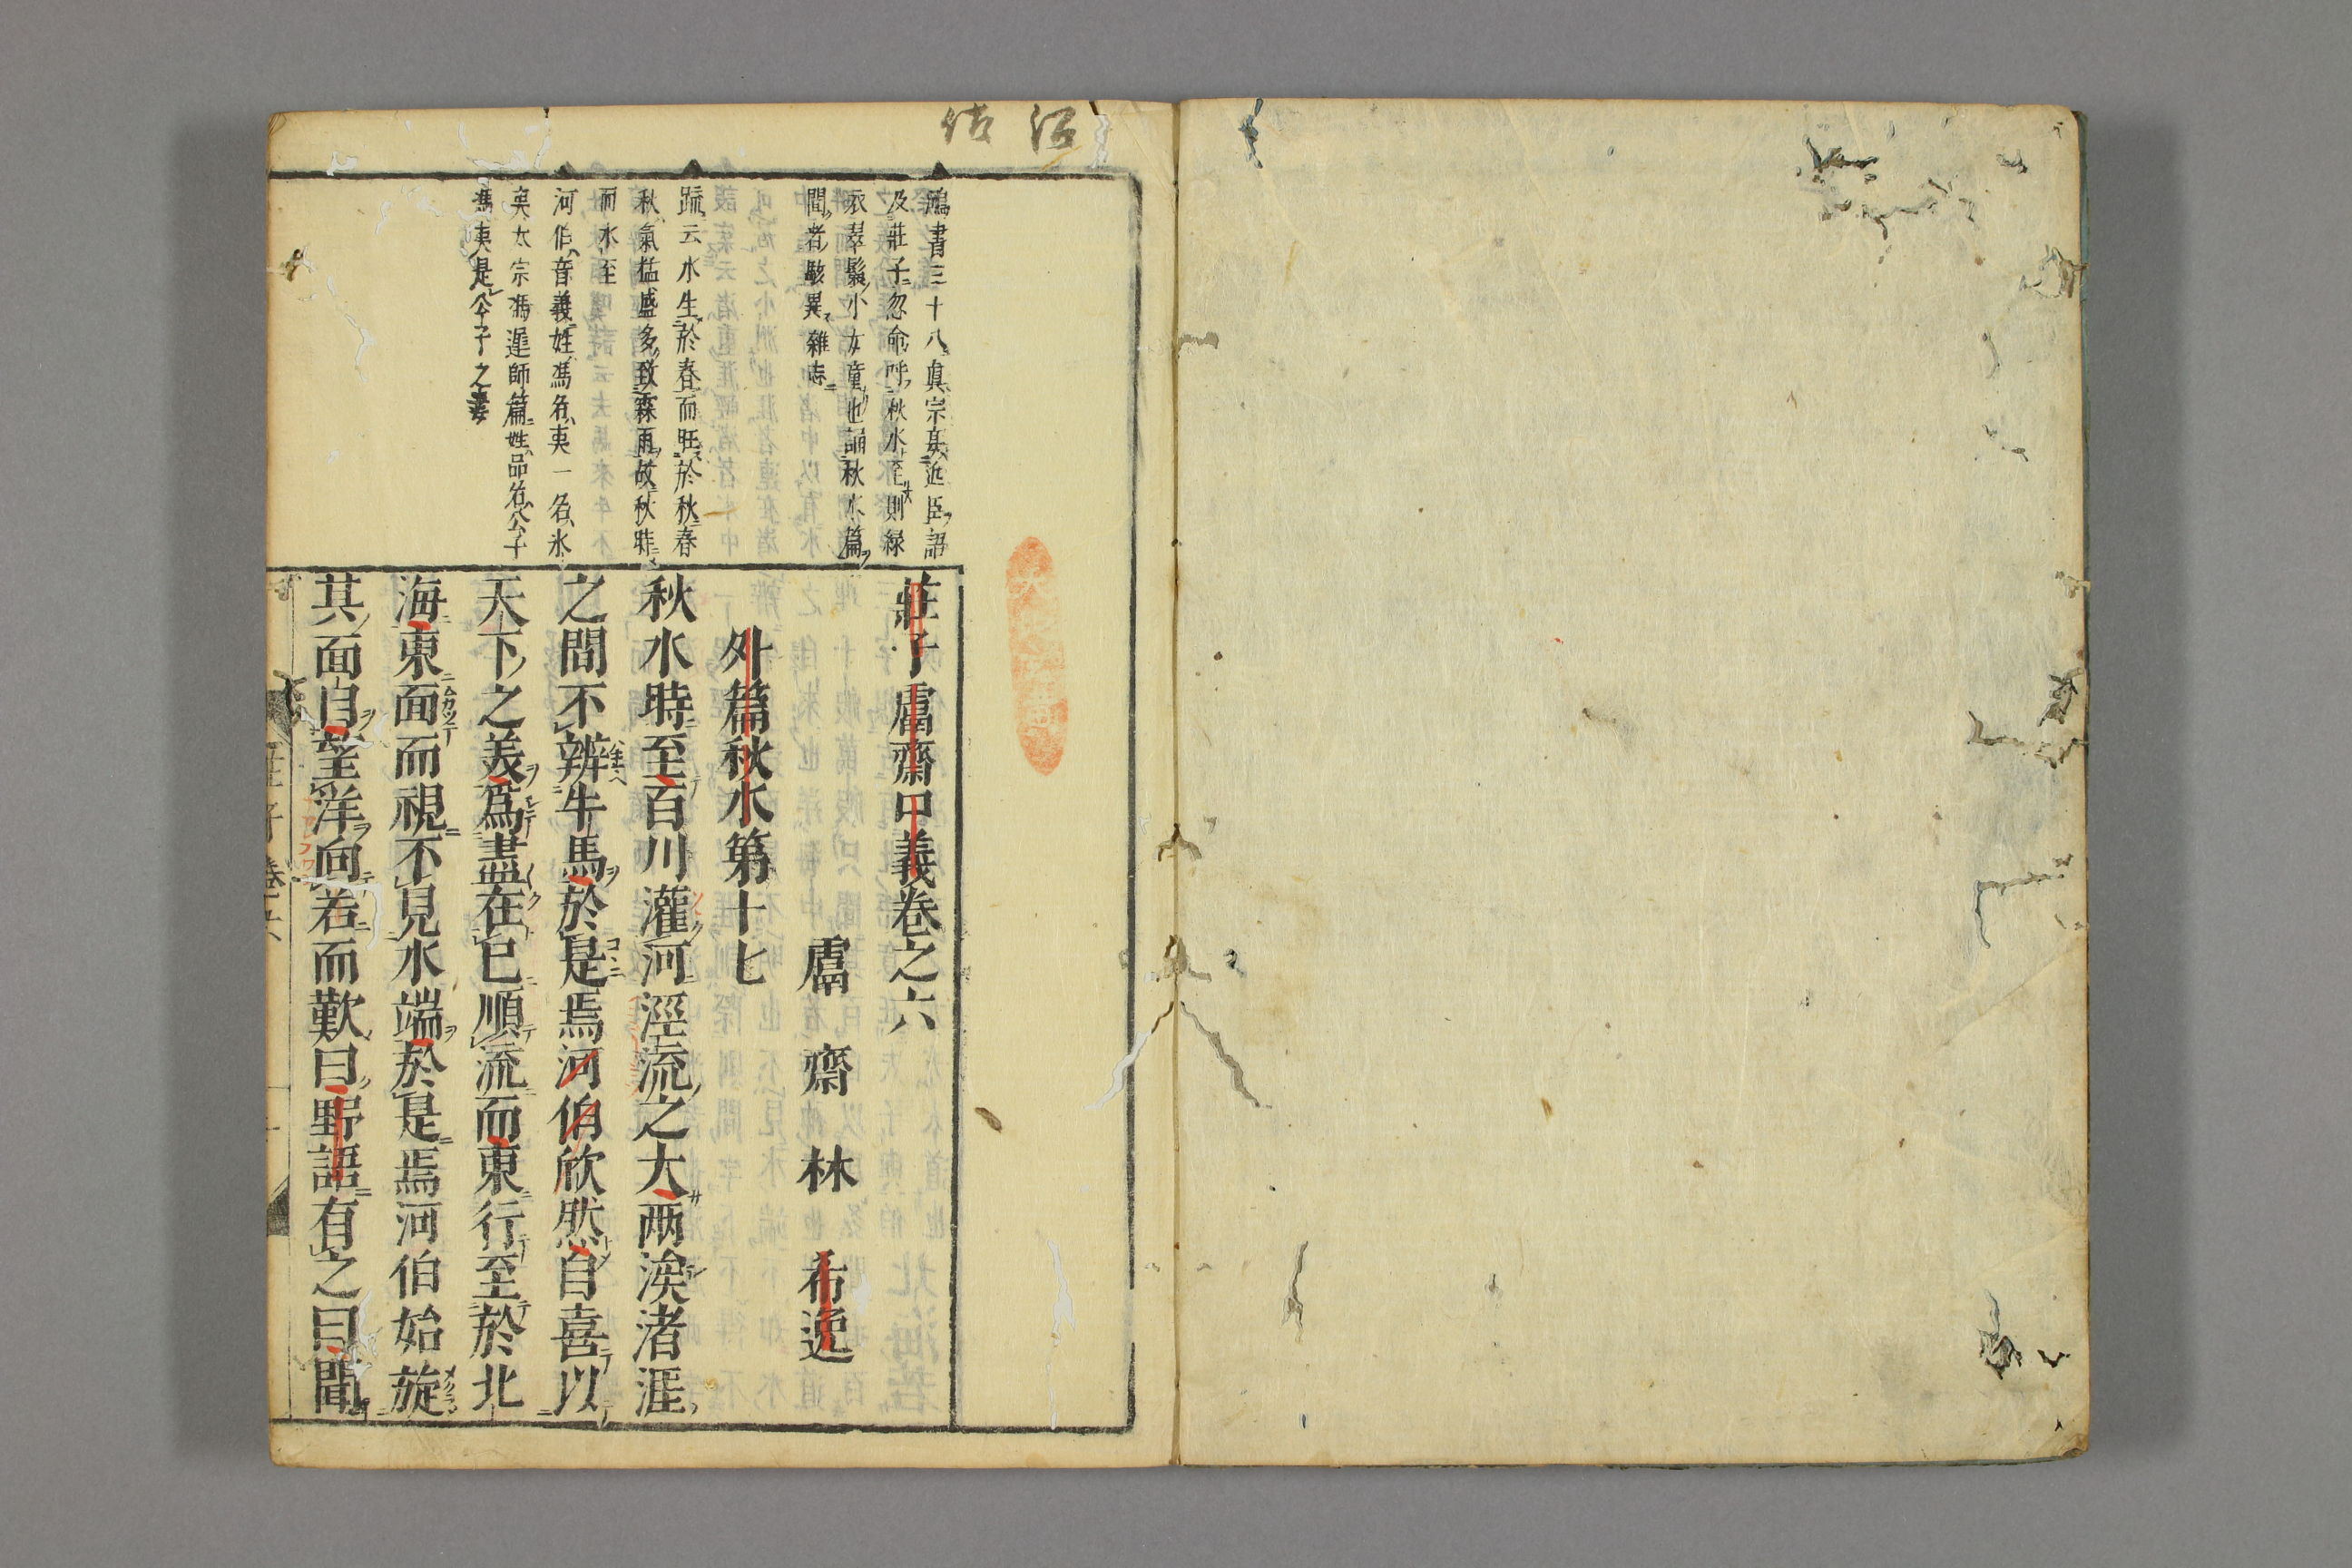 沼 佶
鴻書三十八真宗宴近臣語
及莊子忽命呼秋水至則緑
衣翠鬟小女童也誦秋水篇
聞者駭異雜志
疏云水生於春而旺於秋春
秋氣猛盛多致霖雨故秋時
而水至
河伯音義姓馮名夷一名氷
夷太宗馮遲師篇姓品名公子
馮夷是公子之妻
莊子鬳齋口義卷之六
鬳齋林希逸
外篇秋水第十七
秋水時至百川灌河涇流之大两涘渚涯
之間不辨牛馬於是焉河伯欣然自喜以
天下之美爲盡在已順流而東行至於北
海東面而視不見水端於是焉河伯始旋
其面目望洋向若而歎曰野語有之曰聞